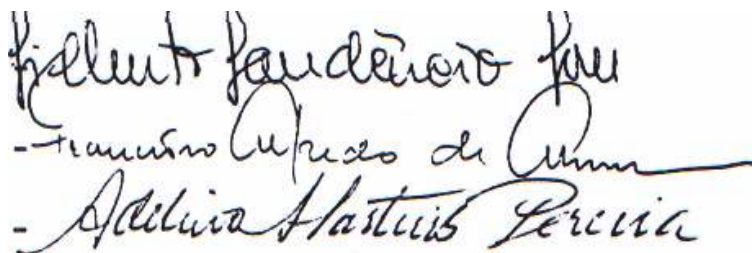 Gilberto Gaudêncio
- Francisco Alfredo de
- Adelina Martins Pereira